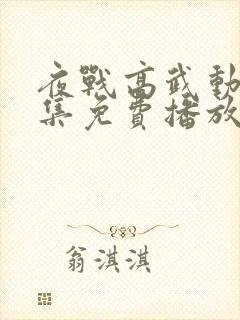 夜戰高武動
集免費播放
翁淇淇